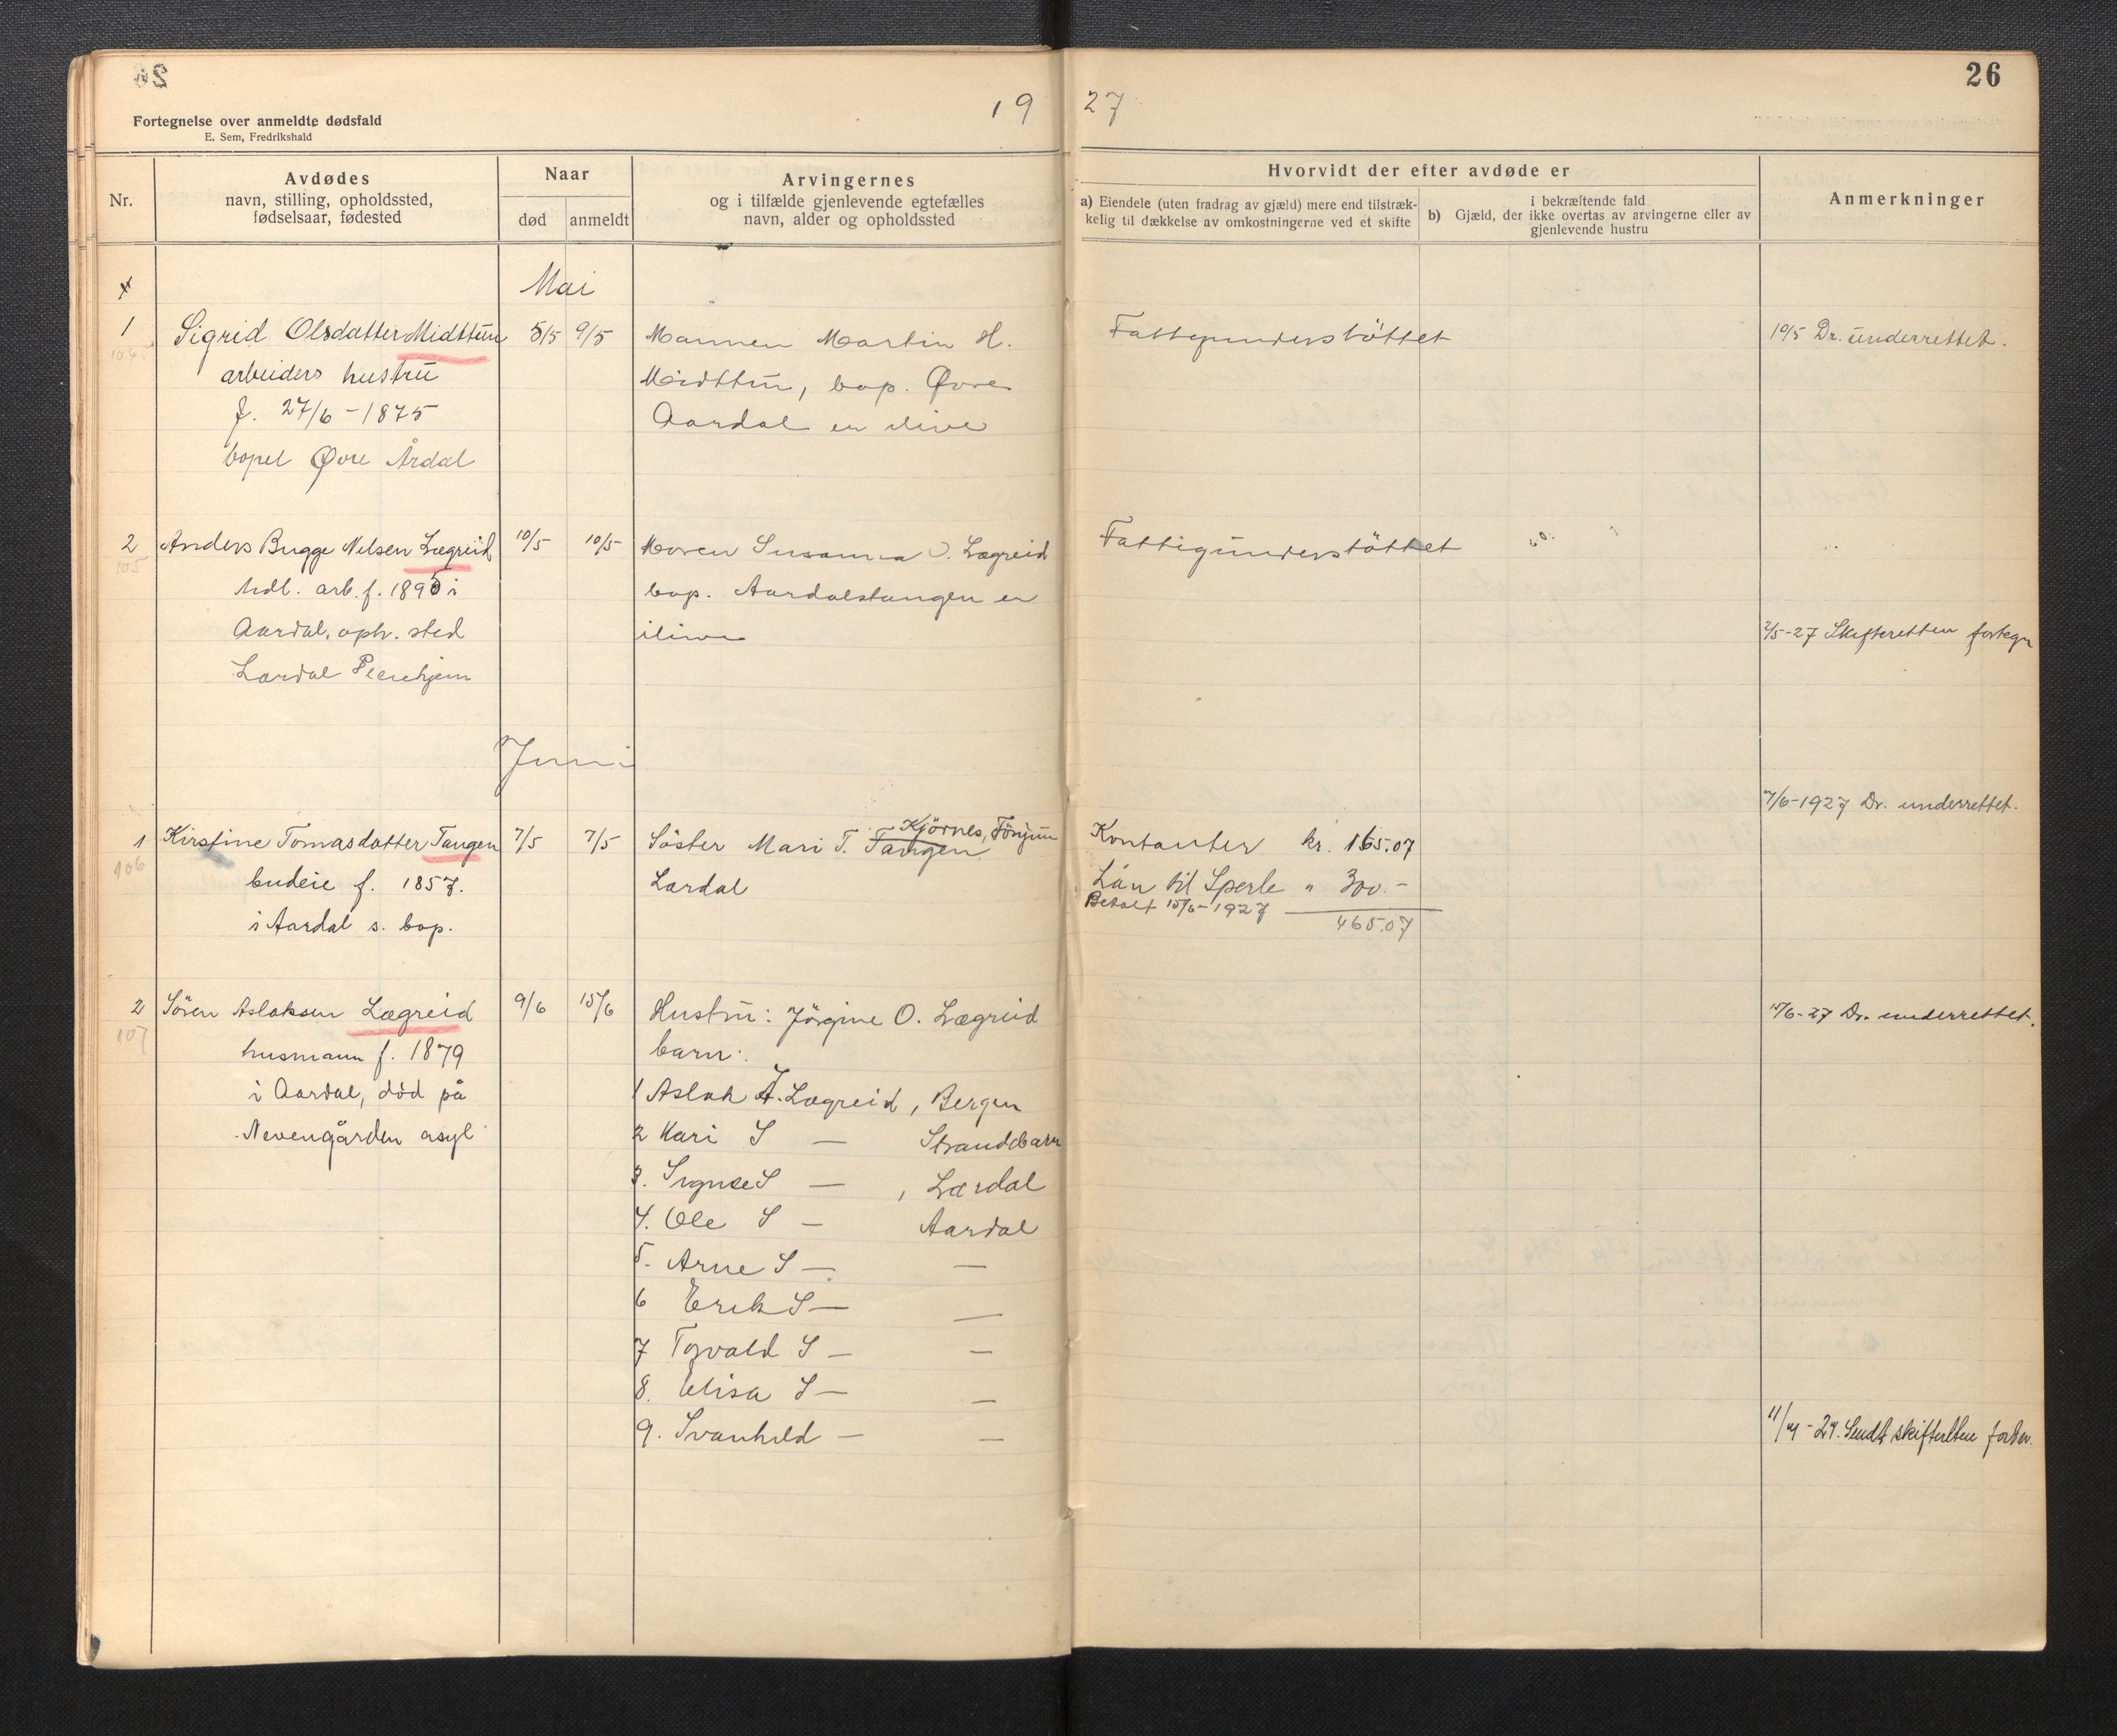 26
19 27
Fortegnelse over anmeldte dødsfald
E. Sem, Fredrikshald
Nr.
Avdødes
navn, stilling, opholdssted,
fødselsaar, fødested
Naar
død anmeldt
Arvingernes
og i tilfælde gjenlevende egtefælles
navn, alder og opholdssted
Hvorvidt der efter avdøde er
a) Eiendele (uten fradrag av gjæld) mere end tilstræk-
kelig til dækkelse av omkostningerne ved et skifte
i bekræftende fald
b) Gjæld, der ikke overtas av arvingerne eller av
gjenlevende hustru
Anmerkninger
Mai
1 Sigrid Olsdatter Midttun 5/5 9/5 Mannen Martin H. Fattigunderstöttet 10/5 Dr. underrettet.
104
arbeiders hustru Midttun, bop. Øvre
f. 27/6 - 1875 Aardal er ilive
bopel Øvre Årdal
2 Anders Bugge Nilsen Lægreid 10/5 10/5 Moren Susanna O. Lægreid Fattigunderstöttet
105
hdl. arb. f. 1895 i bop. Aardalstangen er
Aardal, oph. sted ilive 2/5-27 Skifteretten fortegn
Lærdal Pleiehjem
Juni
7/6-1927 Dr. underrettet.
1 Kirstine Tomasdatter Tangen 7/5 7/5 Söster Mari T. Tangen Kjörnes, Tönjum Kontanter kr. 165.07
106
budeie f. 1857. Lærdal Lån til Sperle " 300.-
Betalt 15/6-1927
i Aardal s. bop. 465.07
2 Sören Aslaksen Lægreid 9/6 15/6 Hustru: Jörgine O. Lægreid 15/6-27 Dr. underrettet.
107
husmann f. 1879 barn:
i Aardal, död på 1 Aslak S. Lægreid, Bergen
Nevengården asyl 2 Kari S — Strandebarm
3. Signe S — , Lærdal
4. Ole S — Aardal
5. Arne S — —
6 Erik S — —
7 Torvald S — —
8. Elisa S — —
9. Svanhild — —
Sendt skifteretten